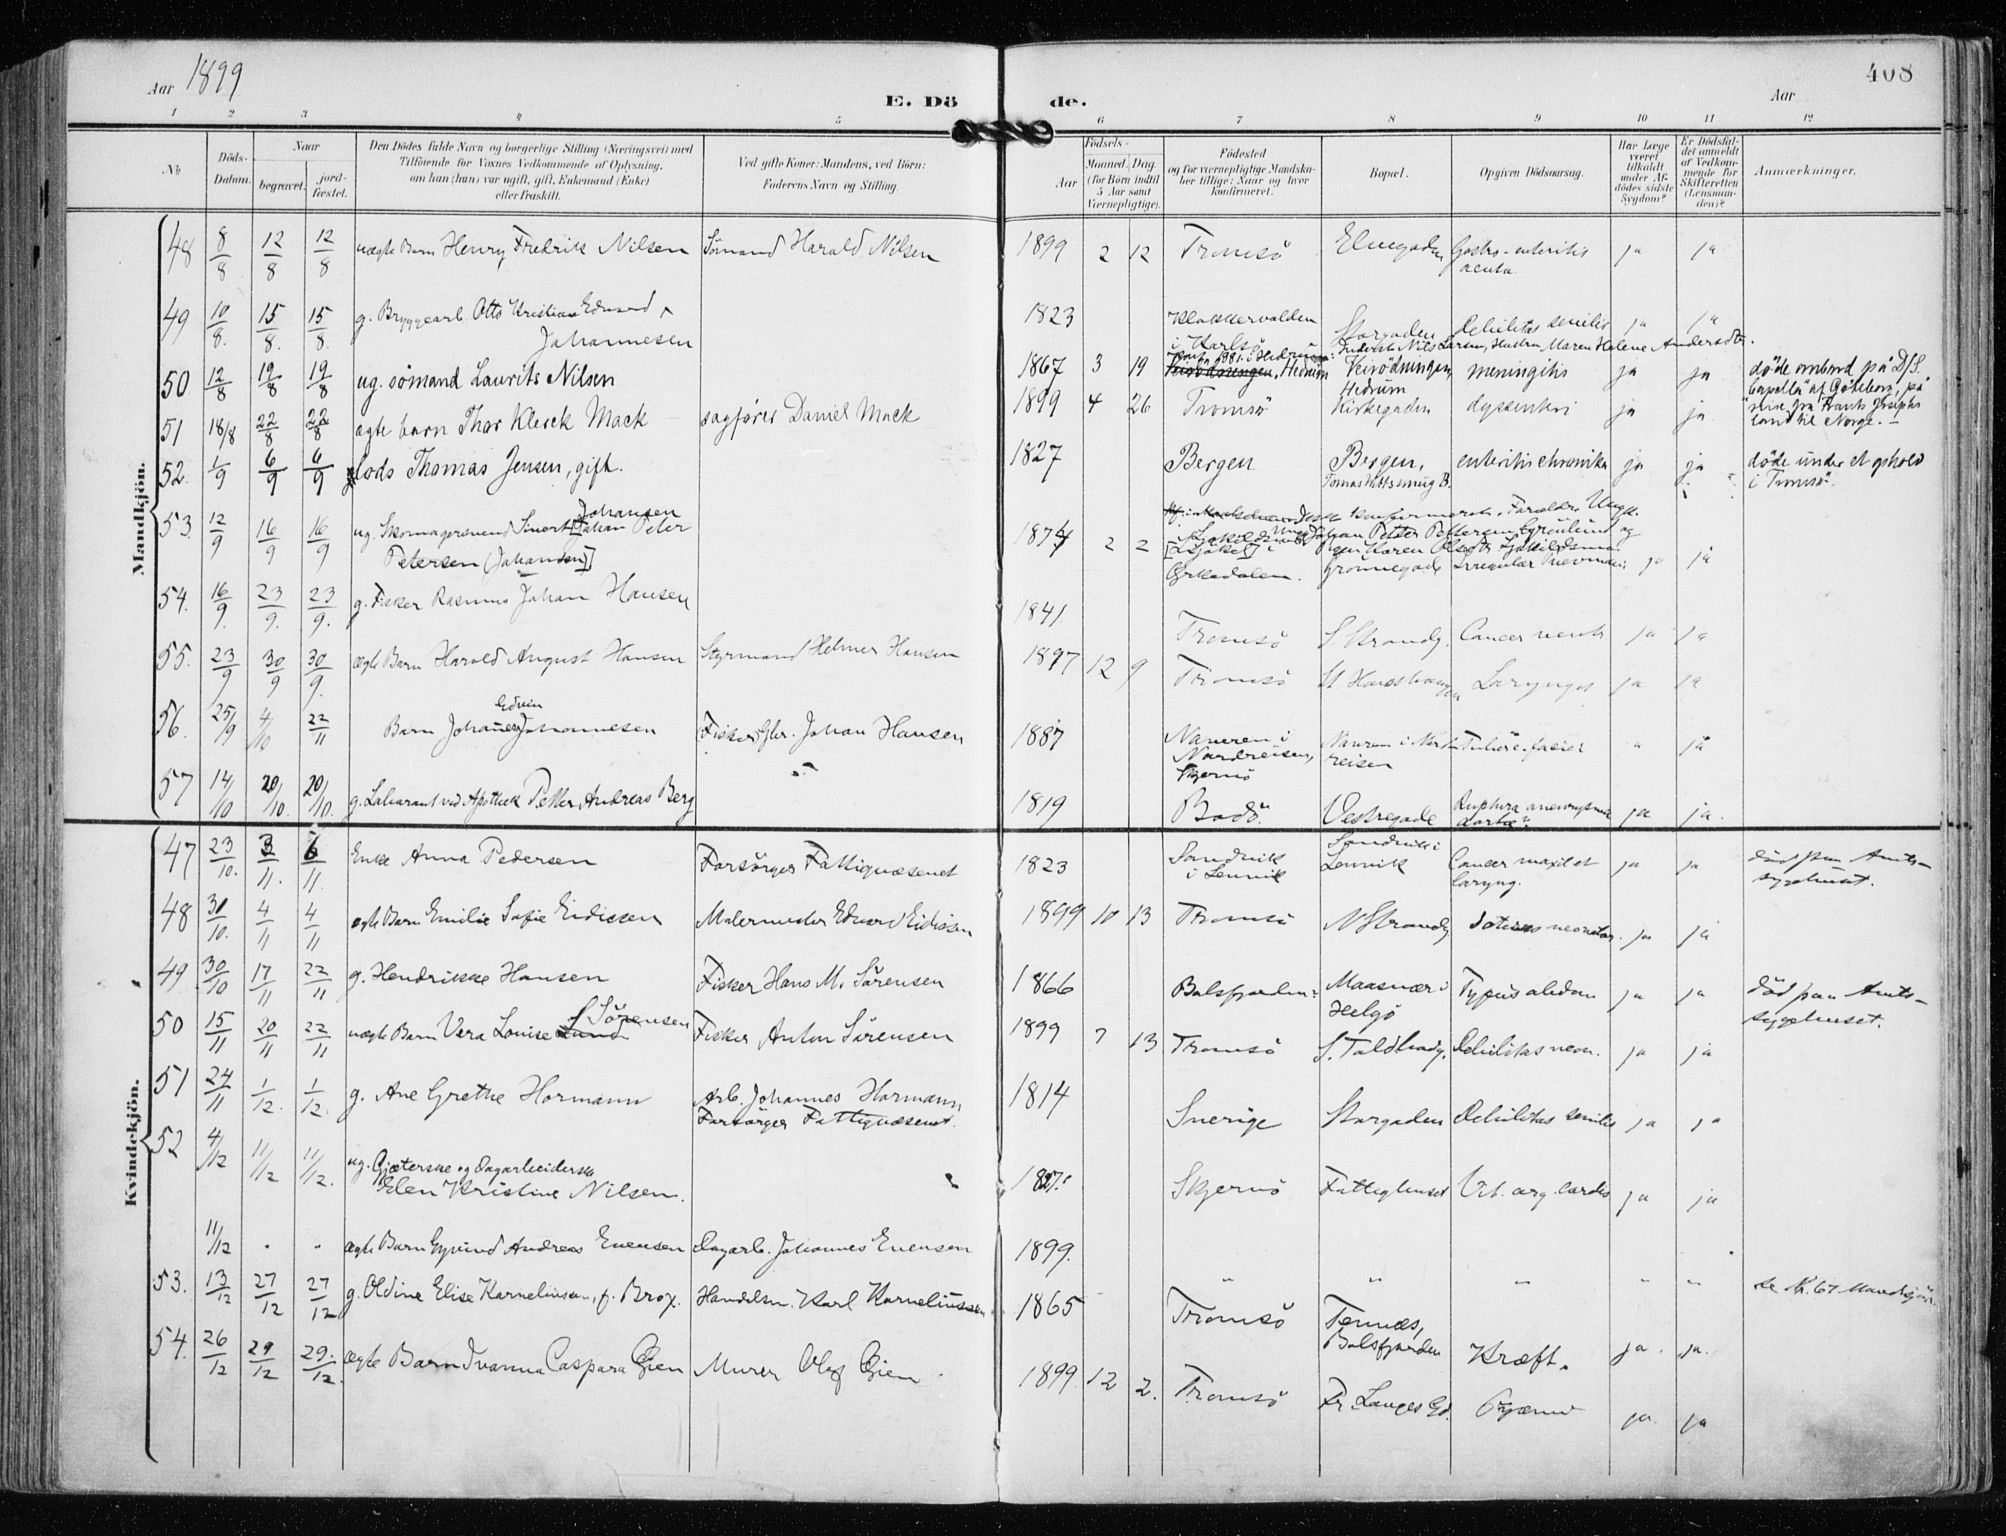 Aar 1899
408
E. Dö de.
Aar
1 2 3 4 5 6 7 8 9 10 11 12
No.
Döds-Datum.
Naar begravet. jordfæstet.
Den Dödes fulde Navn og borgerlige Stilling (Næringsvei) med
Tilföiende for Voxnes Vedkommende af Oplysning,
om han (hun) var ugift, gift, Enkemand (Enke)
eller fraskilt.
Ved gifte Koner: Mandens, ved Börn:
Faderens Navn og Stilling.
Födsels-
Aar Maaned. Dag.
(for Börn indtil
5 Aar samt
Værnepligtige).
Födested
og for værnepligtige Mandskaber tillige: Naar og hvor
konfirmeret.
Bopæl.
Opgiven Dödsaarsag.
Har Læge
været
tilkaldt
under Afdödes sidste
Sygdom?
Er Dödsfaldet anmeldt
af Vedkommende for
Skifteretten
(Lensmanden)?
Anmærkninger.
Mandkjön.
48 8/8 12/8 12/8 uægte Barn Henry Fredrik Nilsen Sömand Harald Nilsen 1899 2 12 Tromsö Elvegaden Gastro-enteritis acuta ja ja
49 10/8. 15/8. 15/8. g. Bryggearb. Otto Kristian Edvard Johannesen 1823 i Karlsö Storgaden Debilitas senilis ja ja
Nils Larsen, Hustru Maren Helene Andersdtr.
50 12/8 19/8 19/8 ug. sömand Laurits Nilsen 1867 3 19 Hedrum Hedrum meningitis ja ja döde ombord på D/S. "Capella" af Göteborg, på reise fra Frants Josephs land til Norge.
51 18/8 22/8 22/8 ægte barn Thor Klerck Mack sagförer Daniel Mack 1899 4 26 Tromsø Kirkegaden dyssenteri ja ja
52. 1/9 6/9 6/9 lods Thomas Jensen, gift. 1827 Bergen Bergen, enteritis chronika ja ja döde under et ophold i Tromsö.
53. 12/9 16/9 16/9 ug. Skomagersvend Johan Peter Johansen Petersen [Johansen] 1874 2 2 Orkedalen. Grönnegade ja ja
54. 16/9. 23/9. 23/9. g. Fisker Rasmus Johan Hansen 1841. Tromsö S. Strandg. Cancer ventr. ja ja
55. 23/9 30/9 30/9. ægte Barn Harald August Hansen Styrmand Helmer Hansen 1897 12 9 Tromsö ja ja
56. 25/9 4/10 22/11 Barn Johannes Edvin Johannesen Fisker Johan Hansen 1887 Nordreisen, Skjervö reisen ja
57 14/10 20/10. 20/10. g. Laborant ved Apothek Petter Andreas Berg 1819 Bodö. Vestregade ja ja.
Kvindekjön.
47 23/10. 3/11. 6/11. Enke Anna Pedersen Forsörges Fattigvæsenet 1823 Sandvik i Lenvik Sandvik i Lenvik Cancer maxil et laryng. ja ja död paa Amtssygehuset.
48 30/10. 4/11 4/11 ægte Barn Emilie Sofie Eidissen Malermester Edvard Eidissen 1899 10 13 Tromsö N Strandg ja ja
49 30/10 17/11 22/11 g. Hendrikke Hansen Fisker Hans M. Sörensen 1866 Balsfjorden Maasvær i Helgö Typus abdom ja ja död paa Amtssygehuset.
50 15/11 20/11 22/11 uægte Barn Vera Louise Lund Sörensen Fisker Anton Sörensen 1899 7 13 Tromsö S. Toldbodg. Debilitas neon. ja ja
51 24/11 1/12. 1/12. g. Ane Grethe Hormann Arb. Johannes Hormann Forsörges Fattigvæsenet. 1814 Sverige Storgaden Debilitas senilis ja ja
52 4/12 11/12 11/12. ug. Gjæterske og Dagarbeiderske Elen Kristine Nilsen. 1827. Skjervö Fattighuset Vit. org. cordis ja ja
11/12 " " ægte Barn Eyvind Andreas Evensen Dagarb. Johannes Evensen 1899. " " " " " se Nr. 67 Mandkjön.
53. 13/12 27/12 27/12 g. Oldine Elise Korneliussen, f. Brox. Handelsm. Karl Korneliussen 1865 Tromsö Tennæs, Balsfjorden Kræft. ja. ja.
54. 26/12 29/12 29./12. ægte Barn Ivanna Caspara Gien Murer Olaf Gien 1899 12 2. Tromsö Fr. Langes Gd. ja. ja